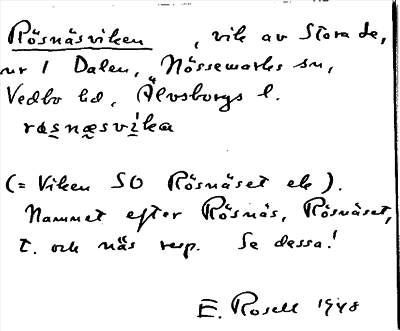 Rösnäsviken, vik av Stora Le,
ur 1 Dalen, Nössemarks sn,
Vedbo hd, Älvsborgs l.
røsnæsvika
(= Viken SO Rösnäset ek).
Namnet efter Rösnäs, Rösnäset,
t. och näs resp. Se dessa!
E. Rosell 1948